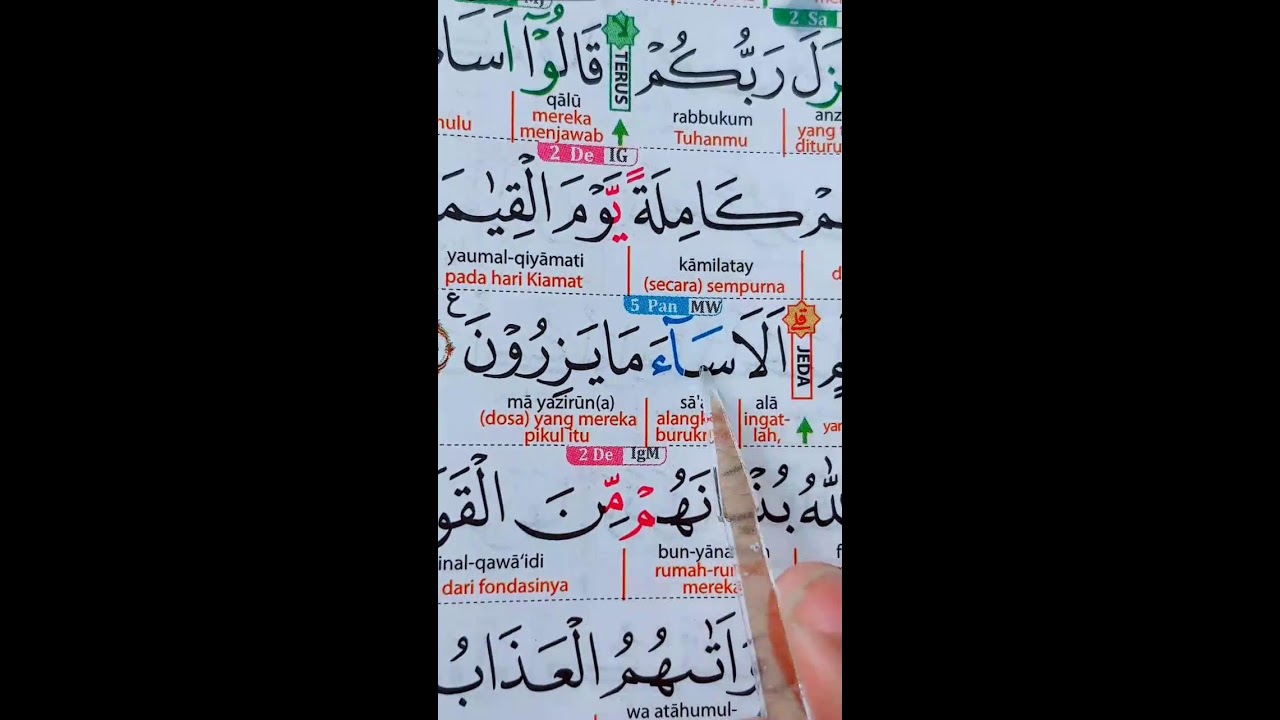 2 Sa
زَلَ رَبُّكُمْ لا قَالُوْٓا اَسَا
TERUS
anz rabbukum qālū
yang Tuhanmu mereka menjawab
2 De IG
مْ كَامِلَةً يَّوْمَ الْقِيٰمَ
kāmilatay yaumal-qiyāmati
(secara) sempurna pada hari Kiamat
5 Pan MW
اَلَا سَاۤءَ مَا يَزِرُوْنَ ع
JEDA
alā mā yazirūn(a)
ingat-lah, (dosa) yang mereka pikul itu
2 De IgM
اللّٰهُ هُمْ مِّنَ الْقَوَ
inal-qawā‘idi
mereka dari fondasinya
وَاَتٰىهُمُ الْعَذَابُ
wa atāhumul-